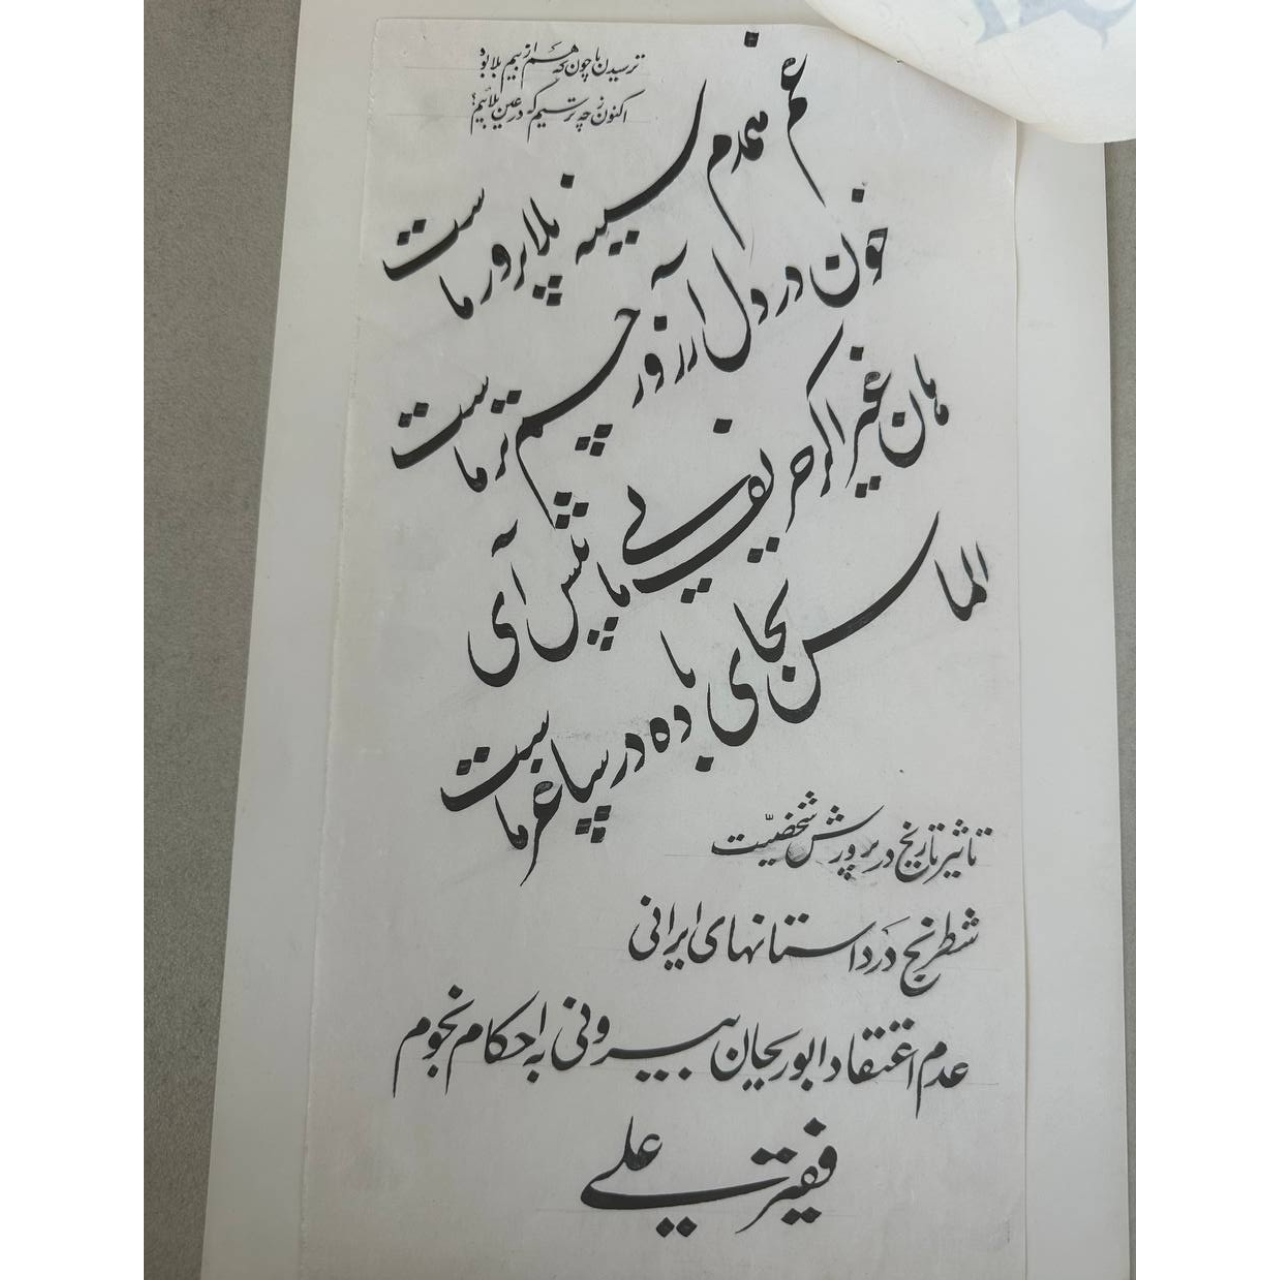 ترسیدن ما چونکه هم از بیم بلا بود
اکنون ز چه ترسیم که در عین بلائیم؟
غم همدم سینه بلاپرور ماست
خون در دل آرزو ز چشم تر ماست
هان غیر اگر حریف مایی پیش آی
الماس بجای باده در ساغر ماست
تاثیر تاریخ در پرورش شخصیّت
شطرنج در داستانهای ایرانی
عدم اعتقاد ابوریحان بیرونی به احکام نجوم
فقیر علی